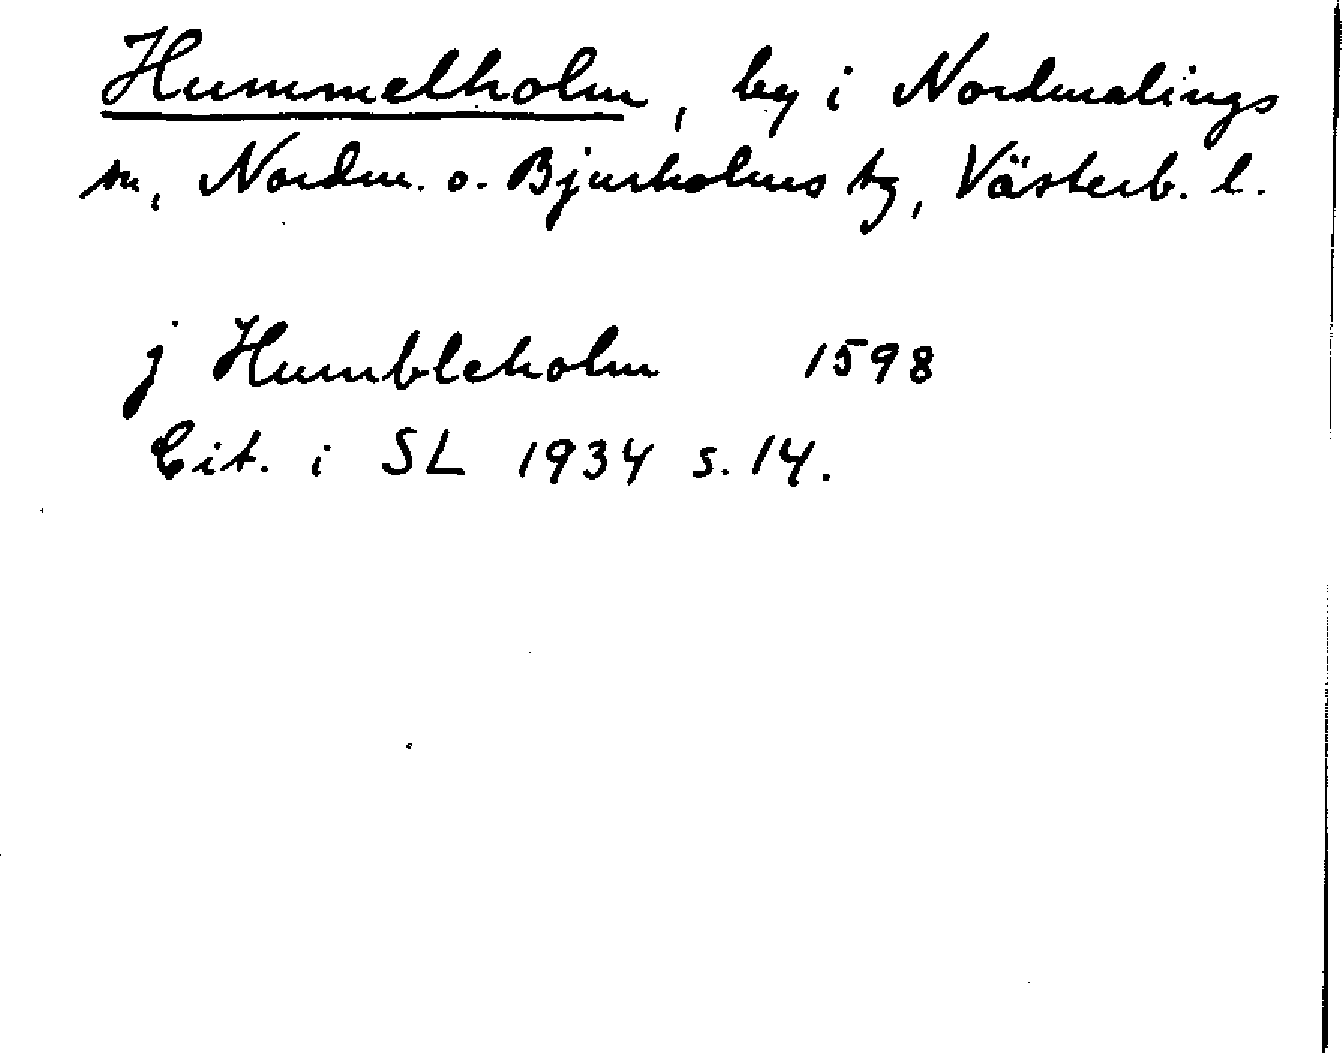 Hummelholm, by i Nordmalings
sn, Nordm. o. Bjurholms tg, Västerb. l.
j Humbleholm 1598
Cit. i SL 1934 s. 14.